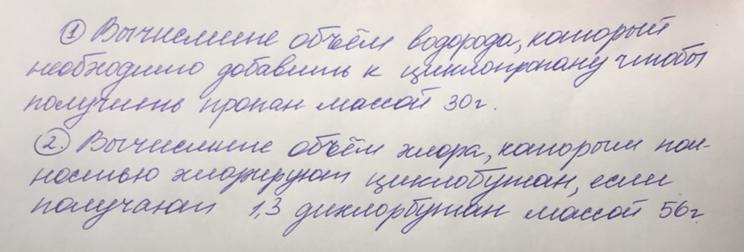 ① Вычислите объём водорода, который
необходимо добавить к циклопропану чтобы
получить пропан массой 30г.
②. Вычислите объём хлора, которым пол-
ностью хлорируют циклобутан, если
получают 1,3 дихлорбутан массой 56г.